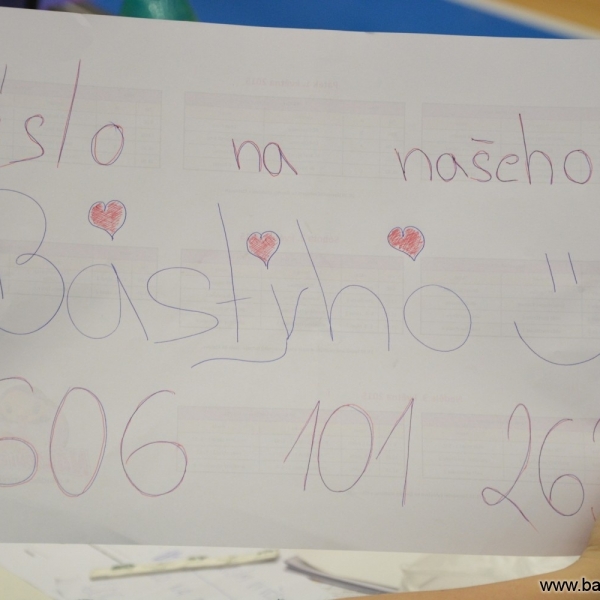 íslo na našeho
Bástyho :)
606 101 26
www.ba